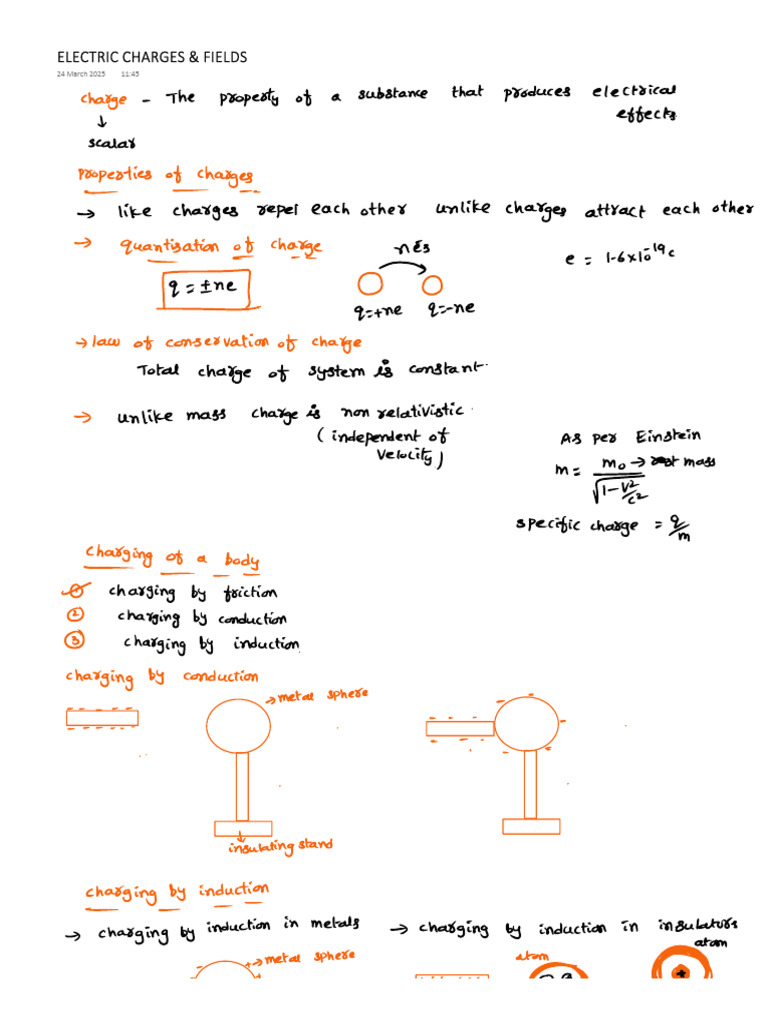 ELECTRIC CHARGES & FIELDS
24 March 2025 11:45
charge - The property of a substance that produces electrical
effects
↓
scalar
Properties of charges
→ like charges repel each other unlike charges attract each other
→ quantisation of charge
n e's
e = 1.6×10⁻¹⁹c
q = ±ne
q=+ne q=-ne
→ law of conservation of charge
Total charge of system is constant.
→ unlike mass charge is non relativistic.
(independent of
velocity)
As per Einstein
m = m₀ → rest mass
√1-v²/c²
specific charge = q/m
charging of a body
① charging by friction
② charging by conduction
③ charging by induction.
charging by conduction
→ metal sphere
insulating stand
charging by induction
→ charging by induction in metals → charging by induction in insulators
atom
→ metal sphere atom